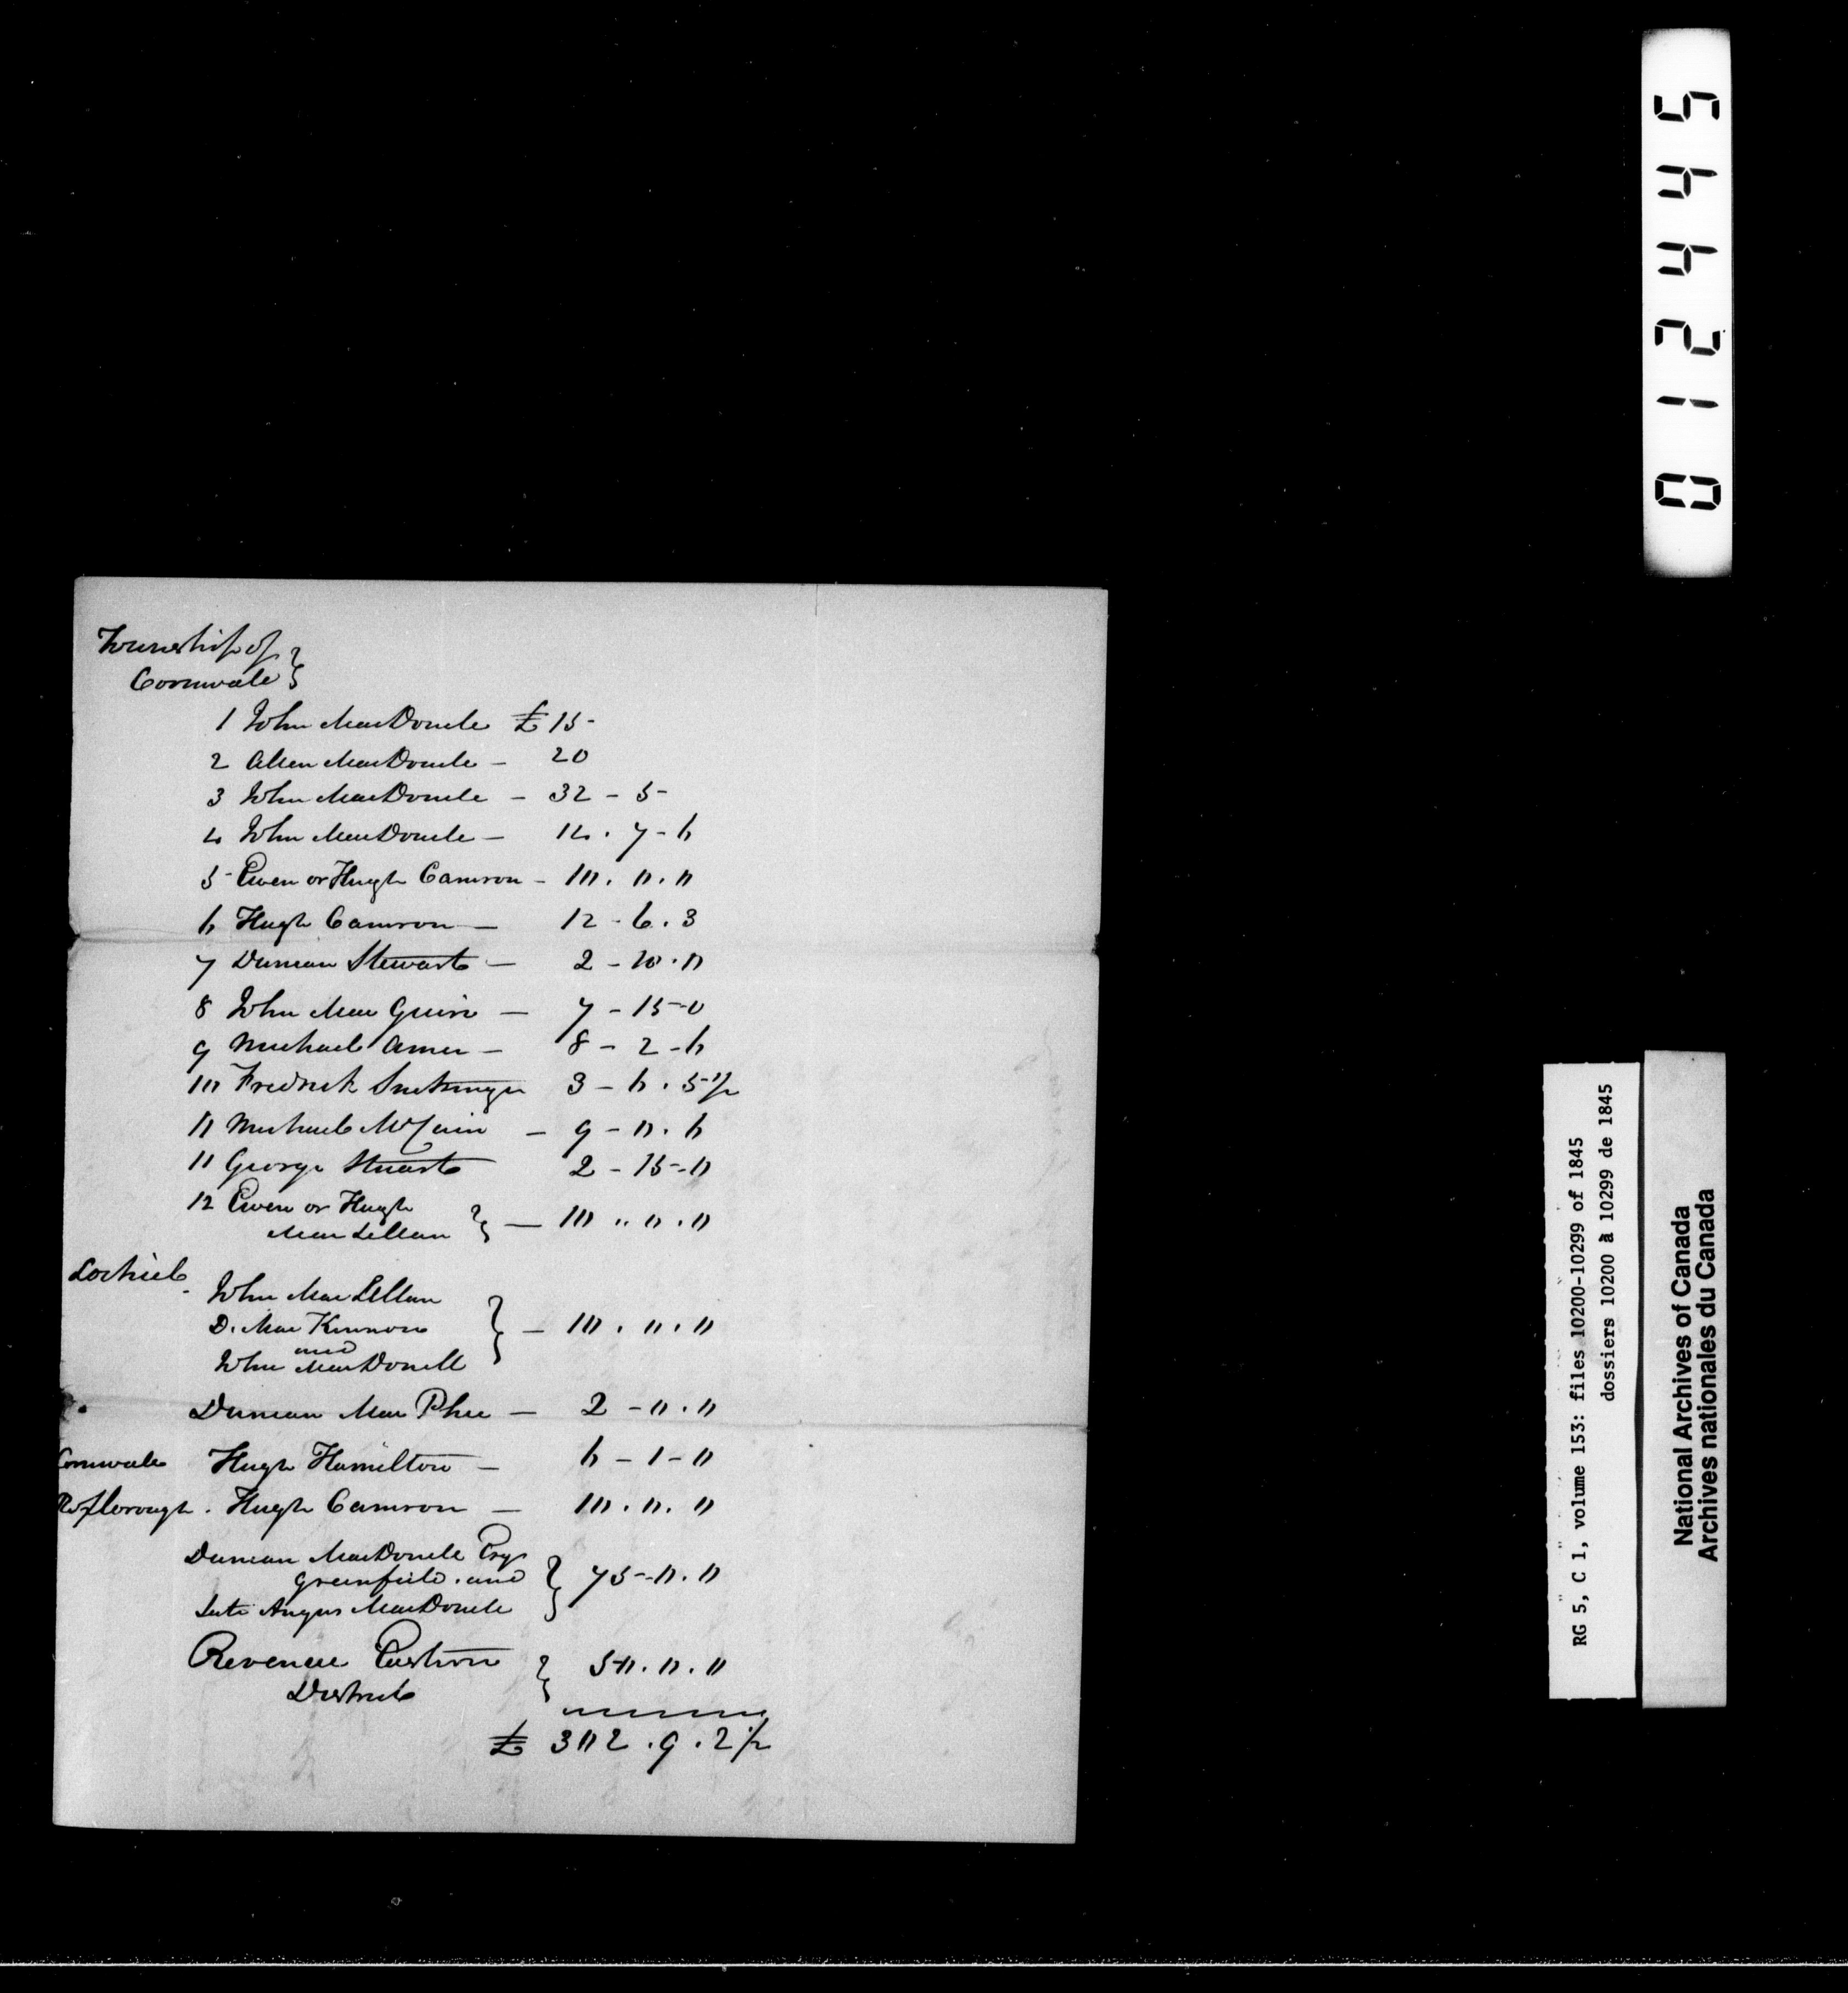 Township of }
Cornwall }
1 John MacDonell £ 15-
2 Allen MacDonell - 20
3 John MacDonell - 32 - 5-
4 John MacDonell - 14 . 7 - 6
5 Ewen or Hugh Camron - 10 . 0 . 0
6 Hugh Camron - 12 - 6 . 3
7 Duncan Stewart - 2 - 10 . 0
8 John Mac Guire - 7 - 15 - 0
9 Michael - 8 - 2 - 6
10 Fredrick 3 - 6 . 5 1/2
11 Michael - 9 - 0 . 6
11 George Stuart 2 - 15 - 0
12 Ewen or Hugh
Mac Lellan } - 10 .. 0 . 0
Lochiel. John Mac Lellan
D. Mac Kinnon } - 10 . 0 . 0
and
John MacDonell
Duncan Mac Phee - 2 - 0 . 0
Cornwall Hugh Hamilton - 6 - 1 - 0
Roxborough . Hugh Camron - 10 . 0 . 0
Duncan MacDonell Esqr
Greenfield . and } 75 - 0 . 0
Late Angus MacDonell
Revenue Eastern } 50 . 0 . 0
District
£ 302 . 9 . 2 1/2
012445
RG 5, C 1, volume 153: files 10200-10299 of 1845
dossiers 10200 à 10299 de 1845
National Archives of Canada
Archives nationales du Canada